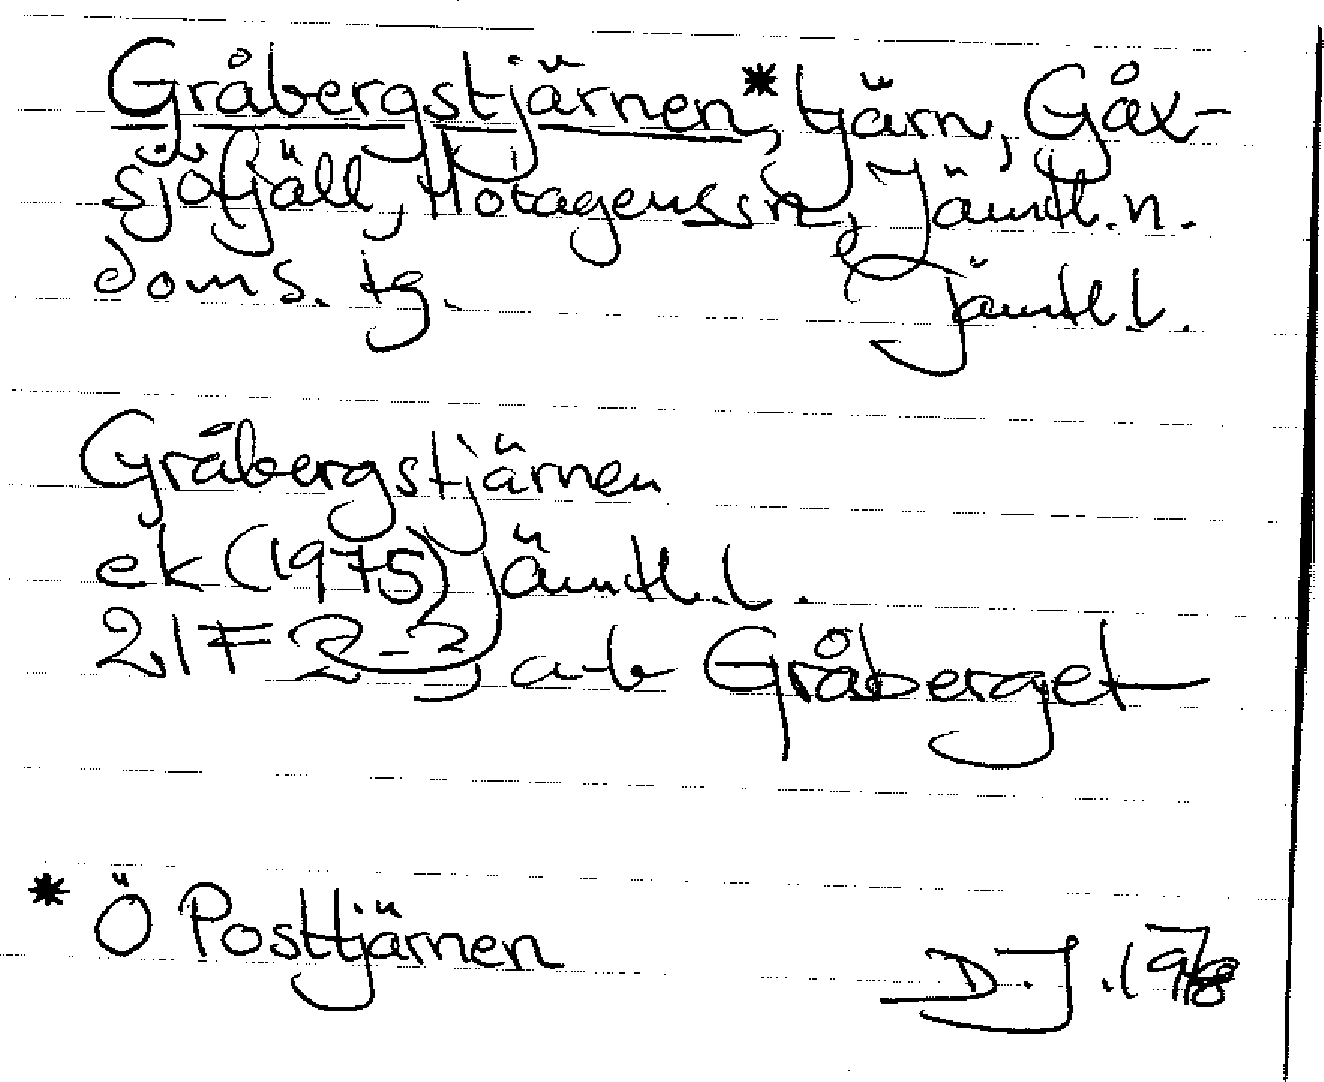 Gråbergstjärnen*, tjärn, Gåx-
sjöfjäll, Hotagens sn, Jämtl. n.
doms. tg. Jämtl. l.
Gråbergstjärnen
ek (1975) Jämtl. l.
21F 2-3, a-b Gråberget
* Ö Posttjärnen
D.J. 1978